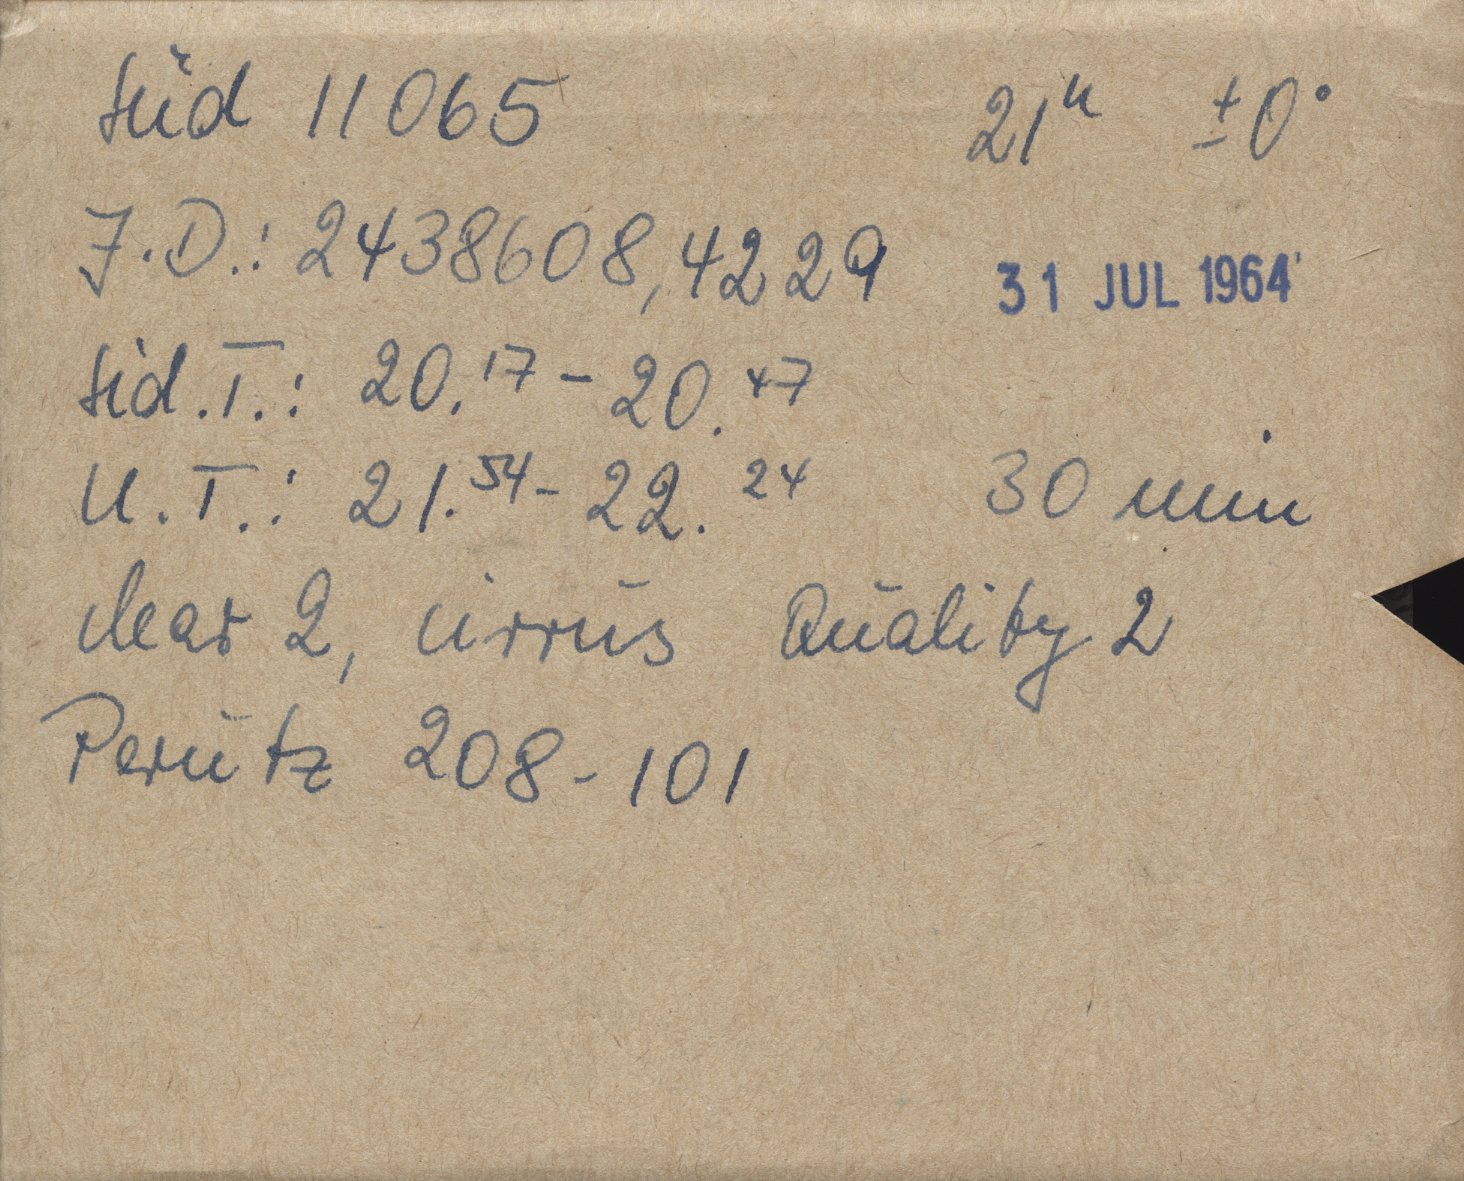 Süd 11065 21ʰ ±0°
J.D.: 2438608,4229 31 JUL 1964
Sid.T.: 20.17 - 20.47
U.T.: 21.54 - 22.24 30 min
clear 2, cirrus Quality 2
Perutz 208-101